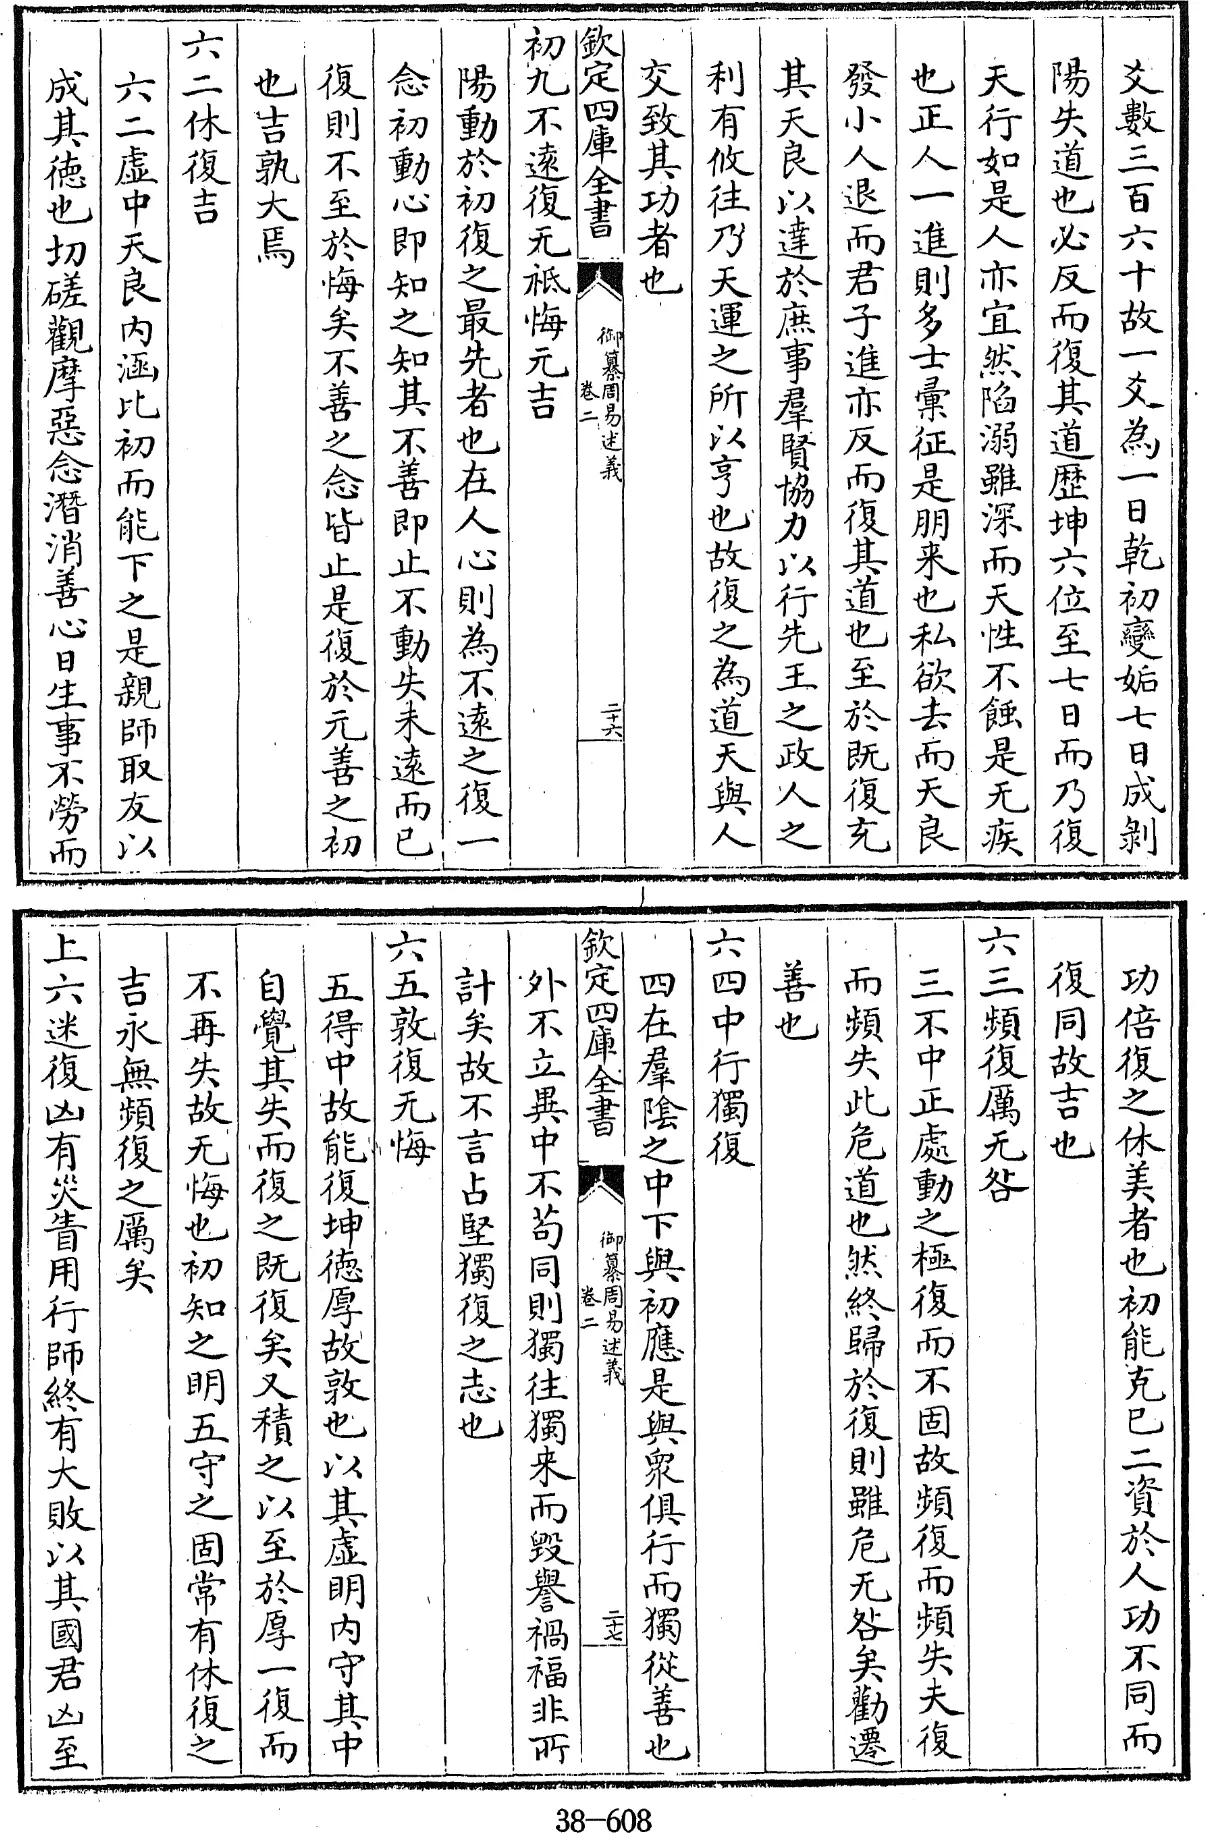 爻數三百六十故一爻為一日乾初變姤七日成剝
陽失道也必反而復其道歴坤六位至七日而乃復
天行如是人亦宜然陷溺雖深而天性不蝕是无疾
也正人一進則多士彙征是朋来也私欲去而天良
發小人退而君子進亦反而復其道也至於既復充
其天良以達於庶事羣賢協力以行先王之政人之
利有攸往乃天運之所以亨也故復之為道天與人
交致其功者也
欽定四庫全書
御纂周易述義
卷二
二十六
初九不逺復无祗悔元吉
陽動於初復之最先者也在人心則為不逺之復一
念初動心即知之知其不善即止不動失未逺而已
復則不至於悔矣不善之念皆止是復於元善之初
也吉孰大焉
六二休復吉
六二虚中天良内涵比初而能下之是親師取友以
成其徳也切磋觀摩惡念潛消善心日生事不勞而
功倍復之休美者也初能克已二資於人功不同而
復同故吉也
六三頻復厲无咎
三不中正處動之極復而不固故頻復而頻失夫復
而頻失此危道也然終歸於復則雖危无咎矣勸遷
善也
六四中行獨復
四在羣陰之中下與初應是與衆俱行而獨從善也
欽定四庫全書
御纂周易述義
卷二
二十七
外不立異中不苟同則獨往獨来而毀譽禍福非所
計矣故不言占堅獨復之志也
六五敦復无悔
五得中故能復坤徳厚故敦也以其虚明内守其中
自覺其失而復之既復矣又積之以至於厚一復而
不再失故无悔也初知之明五守之固常有休復之
吉永無頻復之厲矣
上六迷復凶有災眚用行師終有大敗以其國君凶至
38-608